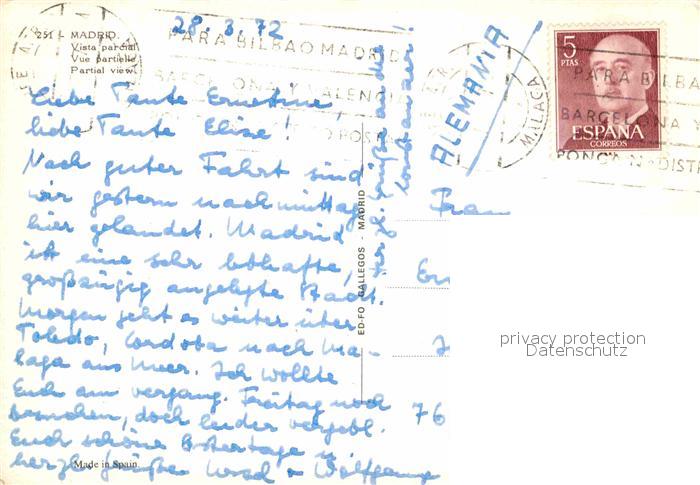 251 - MADRID.
Vista parcial
Vue partielle
Partial view
28. 3. 72
PARA BILBAO MADRID
BARCELONA Y VALENCIA
5
PTAS
ESPAÑA
CORREOS
MALAGA
PARA BILBA
BARCELONA Y
PONGA N° DISTR
ALEMANIA
Liebe Tante Ernestine,
liebe Tante Elise!
Nach guter Fahrt sind
wir gestern nachmittag
hier gelandet. Madrid
ist eine sehr lebhafte,
großzügig angelegte Stadt.
Morgen geht es weiter über
Toledo, Cordoba nach Ma-
laga ans Meer. Ich wollte
Euch am vergang. Freitag noch
besuchen, doch leider vergebl.
Euch schöne Ostertage u.
herzl. Grüße Ursel + Wolfgang
Herzl. Grüße an die
Konstanzer!
Frau
76
ED-FO GALLEGOS - MADRID
Made in Spain
privacy protection
Datenschutz